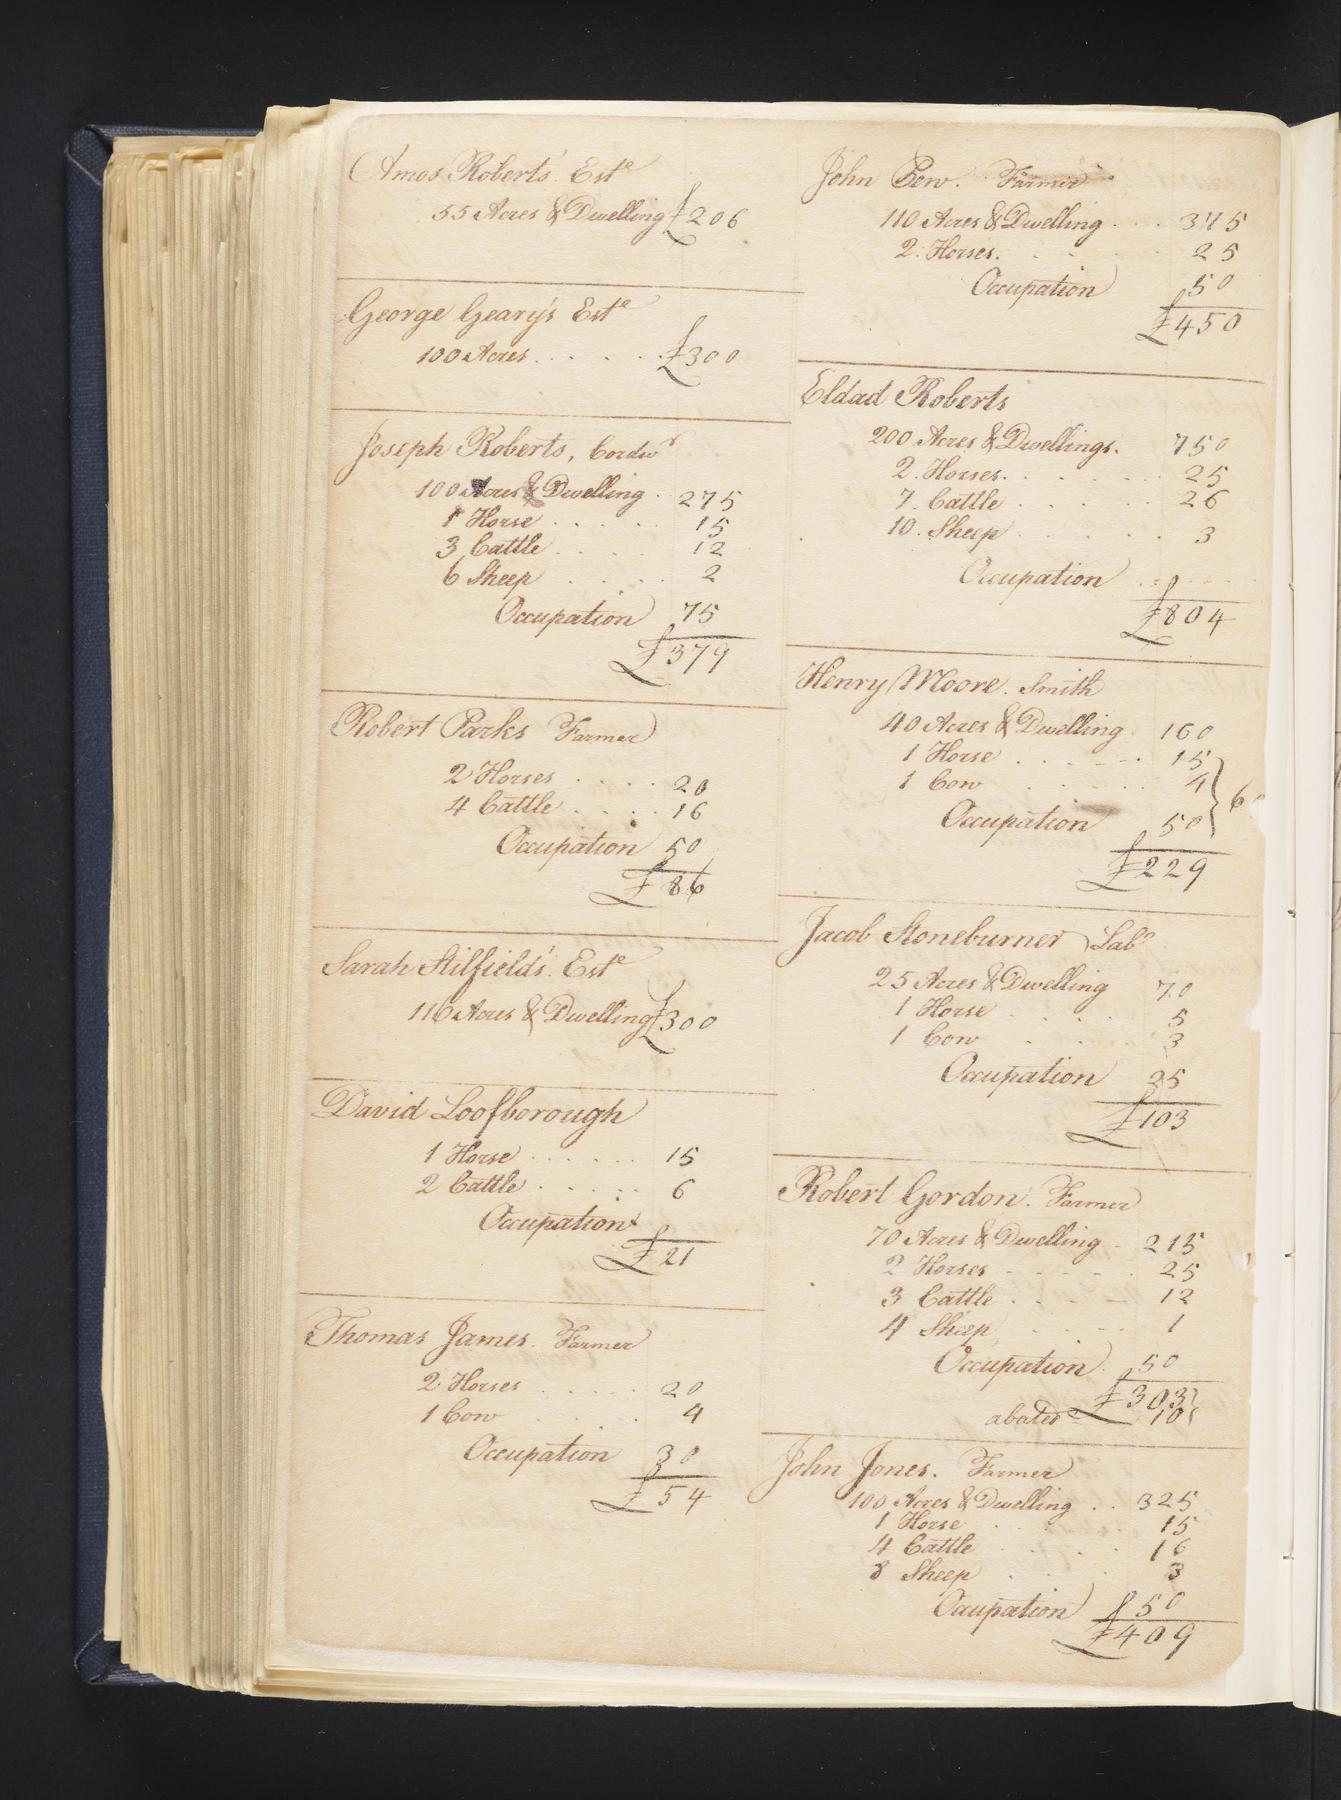 Amos Roberts' Este
55 Acres & Dwelling £206
George Geary's Este
100 Acres . . . . . £300
Joseph Roberts, Cordwr
100 Acres & Dwelling . 275
1 Horse . . . . . 15
3 Cattle . . . . 12
6 Sheep . . . . 2
Occupation 75
£379
Robert Parks Farmer
2 Horses . . . . 20
4 Cattle . . . . 16
Occupation 50
£86
Sarah Stilfield's Este
116 Acres & Dwelling £300
David Loofborough
1 Horse . . . . . . 15
2 Cattle . . . . . 6
Occupation
£21
Thomas James. Farmer
2 Horses . . . . . 20
1 Cow . . . . 4
Occupation 30
£54
John Pew. Farmer
110 Acres & Dwelling . . . 375
2 Horses. . . . . 25
Occupation 50
£450
Eldad Roberts
200 Acres & Dwellings. 750
2. Horses. . . . . . . 25
7. Cattle . . . . . 26
10. Sheep . . . . . 3
Occupation . . . . .
£804
Henry Moore. Smith
40 Acres & Dwelling 160
1 Horse . . . . . 15
1 Cow . . . . . 4 } 6
Occupation 50
£229
Jacob Stoneburner Labo
25 Acres & Dwelling 70
1 Horse . . . . 5
1 Cow . . . 3
Occupation 25
£103
Robert Gordon. Farmer
70 Acres & Dwelling . 215
2 Horses . . . . . 25
3 Cattle . . . . 12
4 Sheep . . . . 1
Occupation. 50
£303
abated 10
John Jones. Farmer
100 Acres & Dwelling . . 325
1 Horse . . . . 15
4 Cattle . . . . 16
8 Sheep . . . 3
Ocupation 50
£409